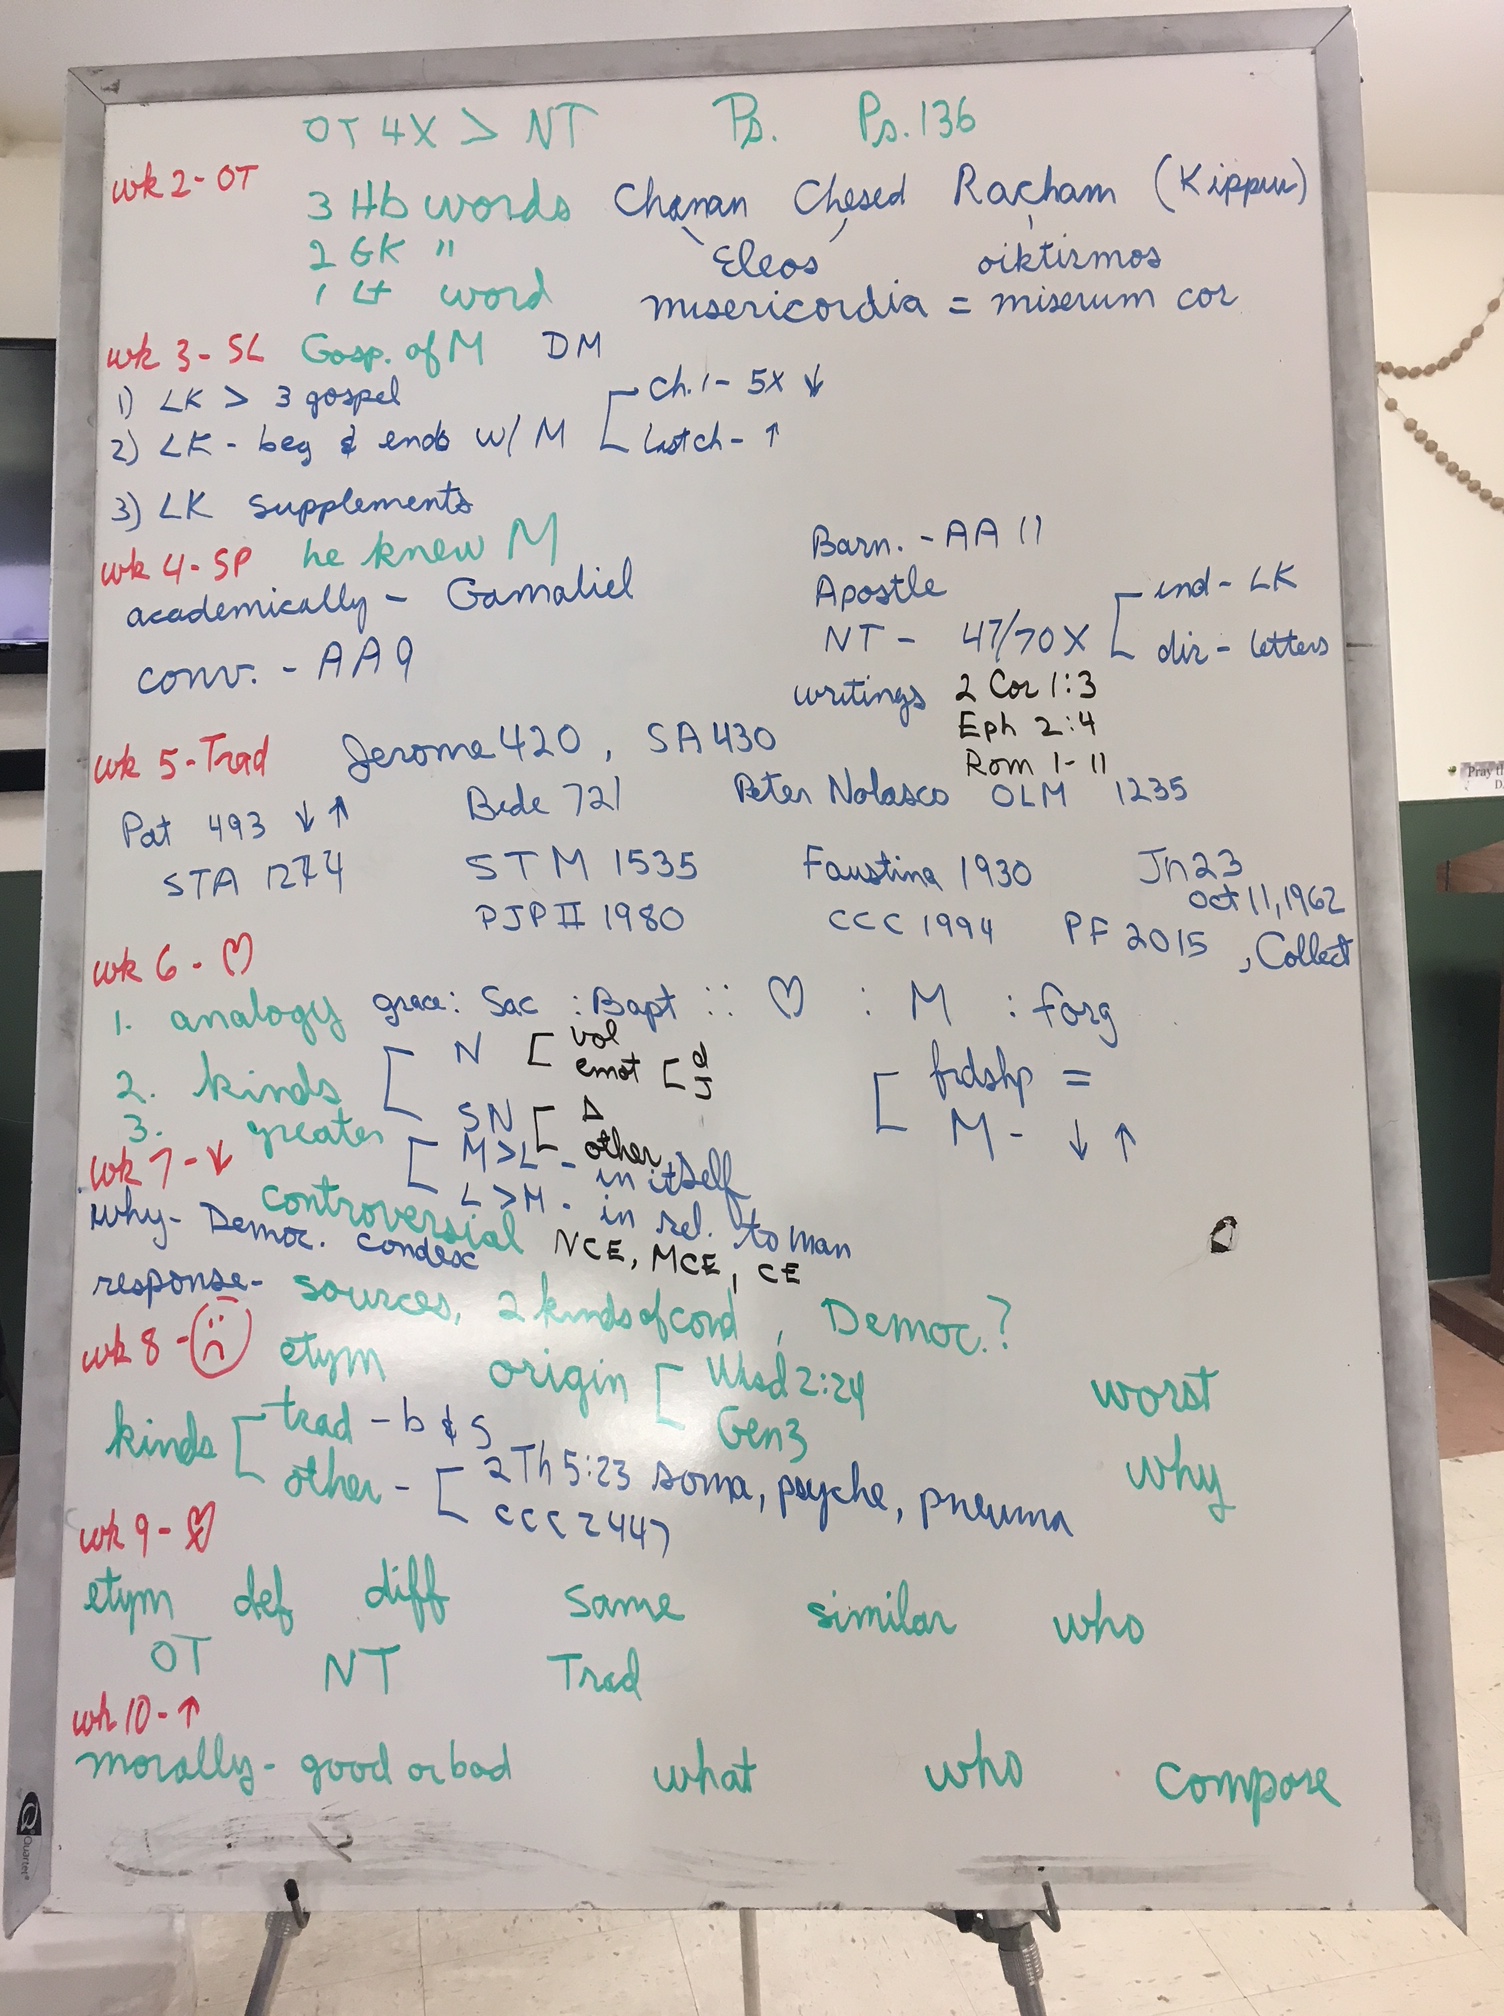 OT 4X > NT Ps. Ps. 136
wk 2 - OT
3 Hb words Chanan Chesed Racham (Kippur)
2 GK " Eleos oiktirmos
1 Lt word misericordia = miserum cor
wk 3 - SL Gosp. of M DM
1) LK > 3 gospel
ch. 1 - 5X ↓
2) LK - beg & ends w/ M
last ch - ↑
3) LK supplements
wk 4 - SP he knew M
Barn. - AA 11
academically - Gamaliel
Apostle
ind - LK
conv. - AA 9
NT - 47/70X
dir - letters
writings 2 Cor 1:3
Eph 2:4
Rom 1-11
wk 5 - Trad Jerome 420, SA 430
Pat 493 ↓ ↑ Bede 721 Peter Nolasco OLM 1235
STA 1274 STM 1535 Faustina 1930 Jn 23
Oct 11, 1962
PJP II 1980 CCC 1994 PF 2015, Collect
wk 6 - ♡
1. analogy grace : Sac : Bapt :: ♡ : M : forg
2. kinds
N vol
emot d
J
SN Δ
other
frdshp =
M - ↓ ↑
3. greater
M > L - in itself
L > M - in rel. to man
wk 7 - ↓
controversial
why - Democ. condesc NCE, MCE, CE
response - sources, 2 kinds of cond, Democ.?
wk 8 - ☹
etym origin Wisd 2:24 worst
Gen 3
kinds trad - b & s
other - 2 Th 5:23 soma, psyche, pneuma why
CCC 2447
wk 9 -
etym def diff same similar who
OT NT Trad
wk 10 - ↑
morally - good or bad what who compose
Quartet
Pray th